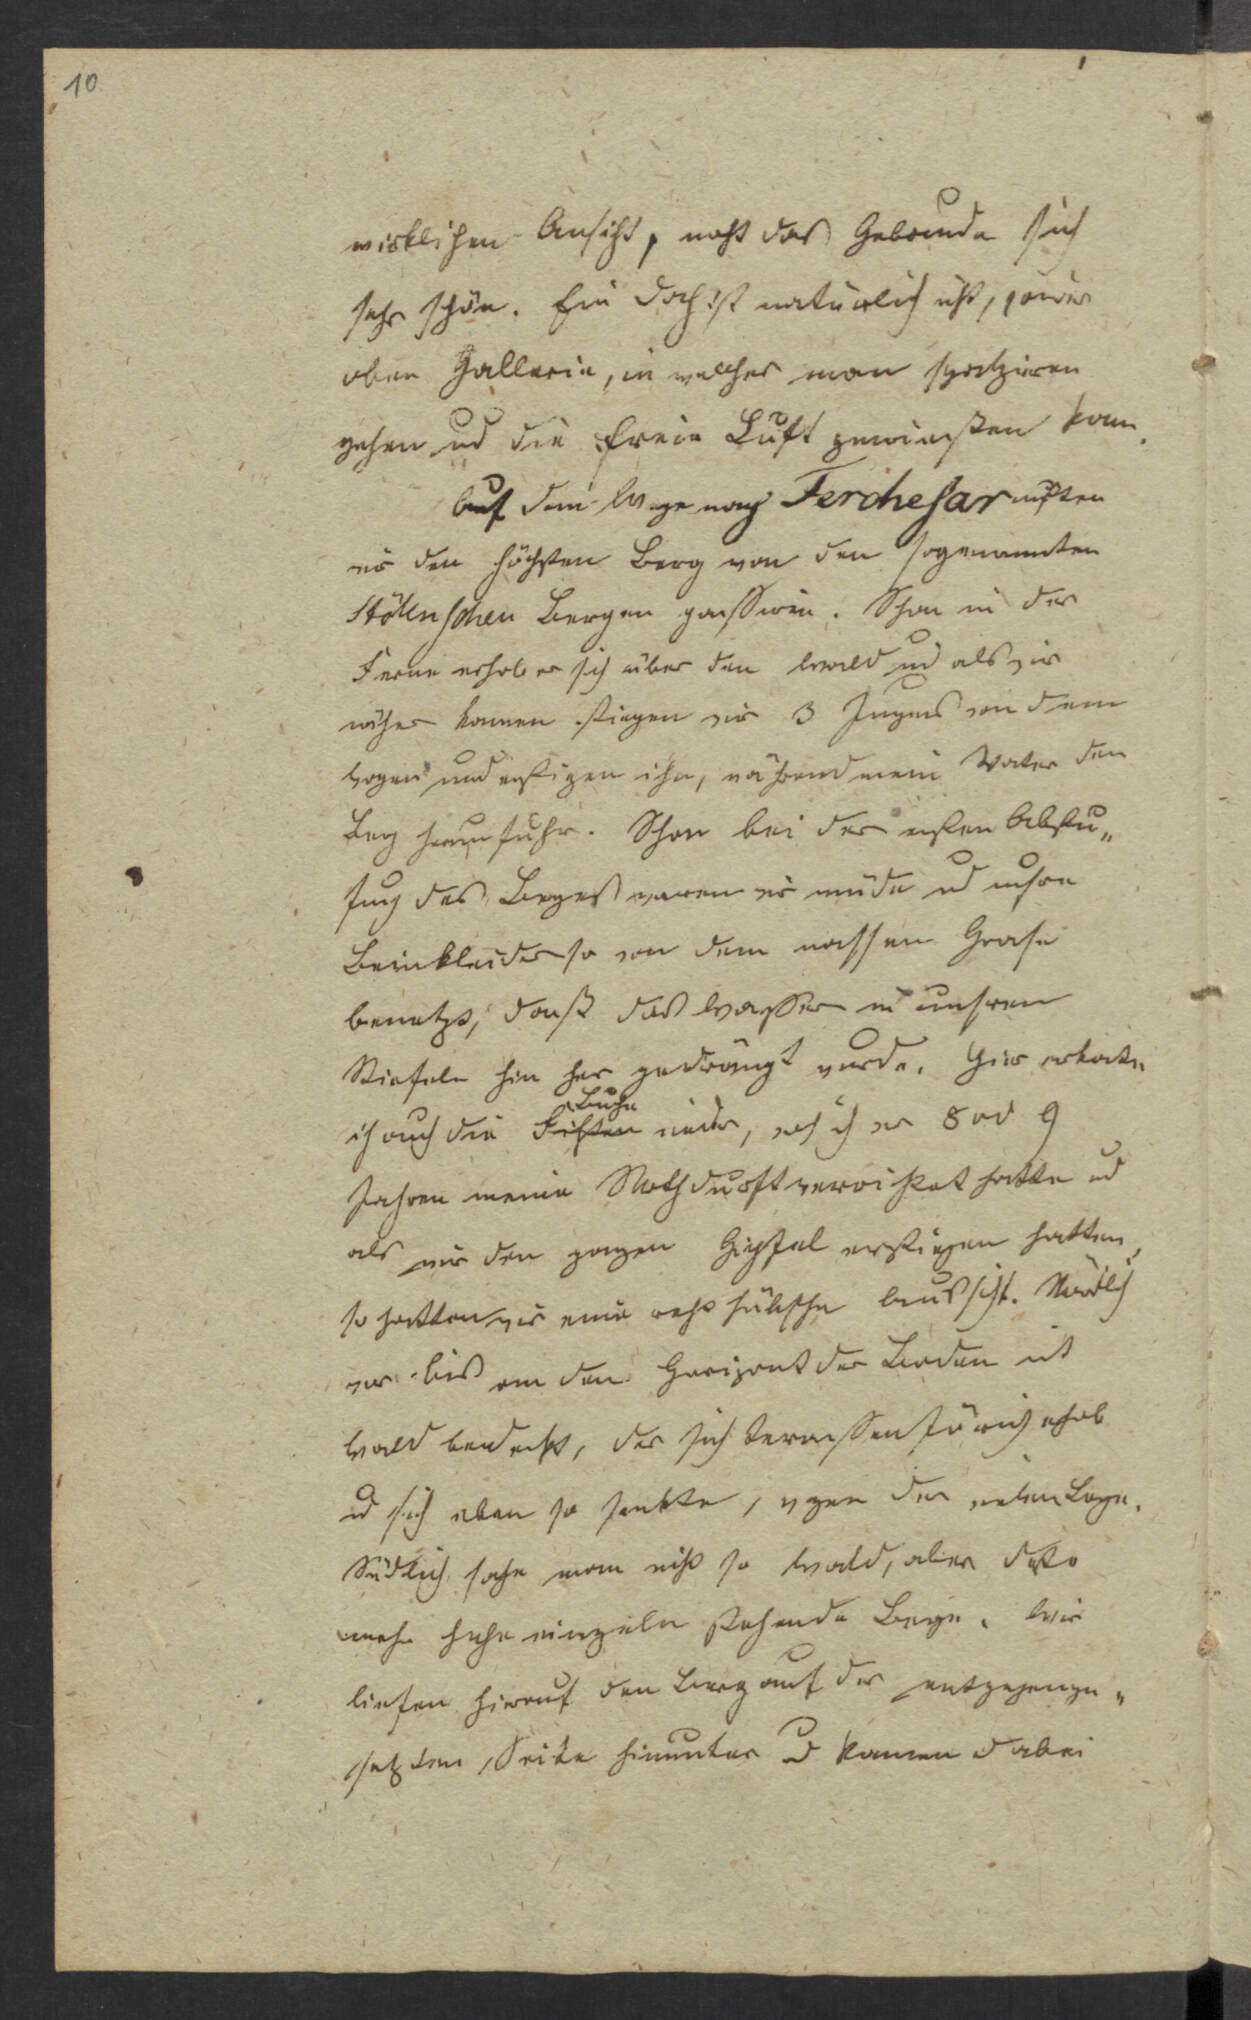 10
wirklichen Ansicht, nahst das Gebäude sich
sehr schön. Ein Dach ist natürlich nicht,
oben Gallerie, in welcher man spatziren
gehen und die freie Luft geniessen kann.
Auf dem Wege nach Ferchesar mußten
wir den höchsten Berg von den sogenannten
Stöllnschen Bergen passiren. Schon in der
Ferne erhob er sich über den Wald und als wir
näher kamen stiegen wir 3 Jungens von dem
Wagen und erstigen ihn, während mein Vater den
Berg herumfuhr. Schon bei der ersten Abstu„
fung des Berges waren wir müde und unsre
Beinkleider so von dem nassen Grase
benetzt, daß das Wasser in unsren
Stiefeln hin her gedrängt wurde. Hier erkante
ich auch die Fichten Buche wieder, wo ich vor 8 od 9
Jahren meine Nothdurft verrichtet hatte und
als wir den ganzen Gipfel erstiegen hatten,
so hatten wir eine recht hübsche Aussicht. Nördlich
war bis an den Horizont der Boden mit
Wald bedeckt, der sich terassenförmig erhob
und sich eben so senkte, wegen der vielen Berge.
Südlich sahe man nicht so Wald, aber desto
mehr hohe einzeln stehende Berge. Wir
liefen hierauf den Berg auf der entgegenge„
setzten Seite hinunter und kamen dabei